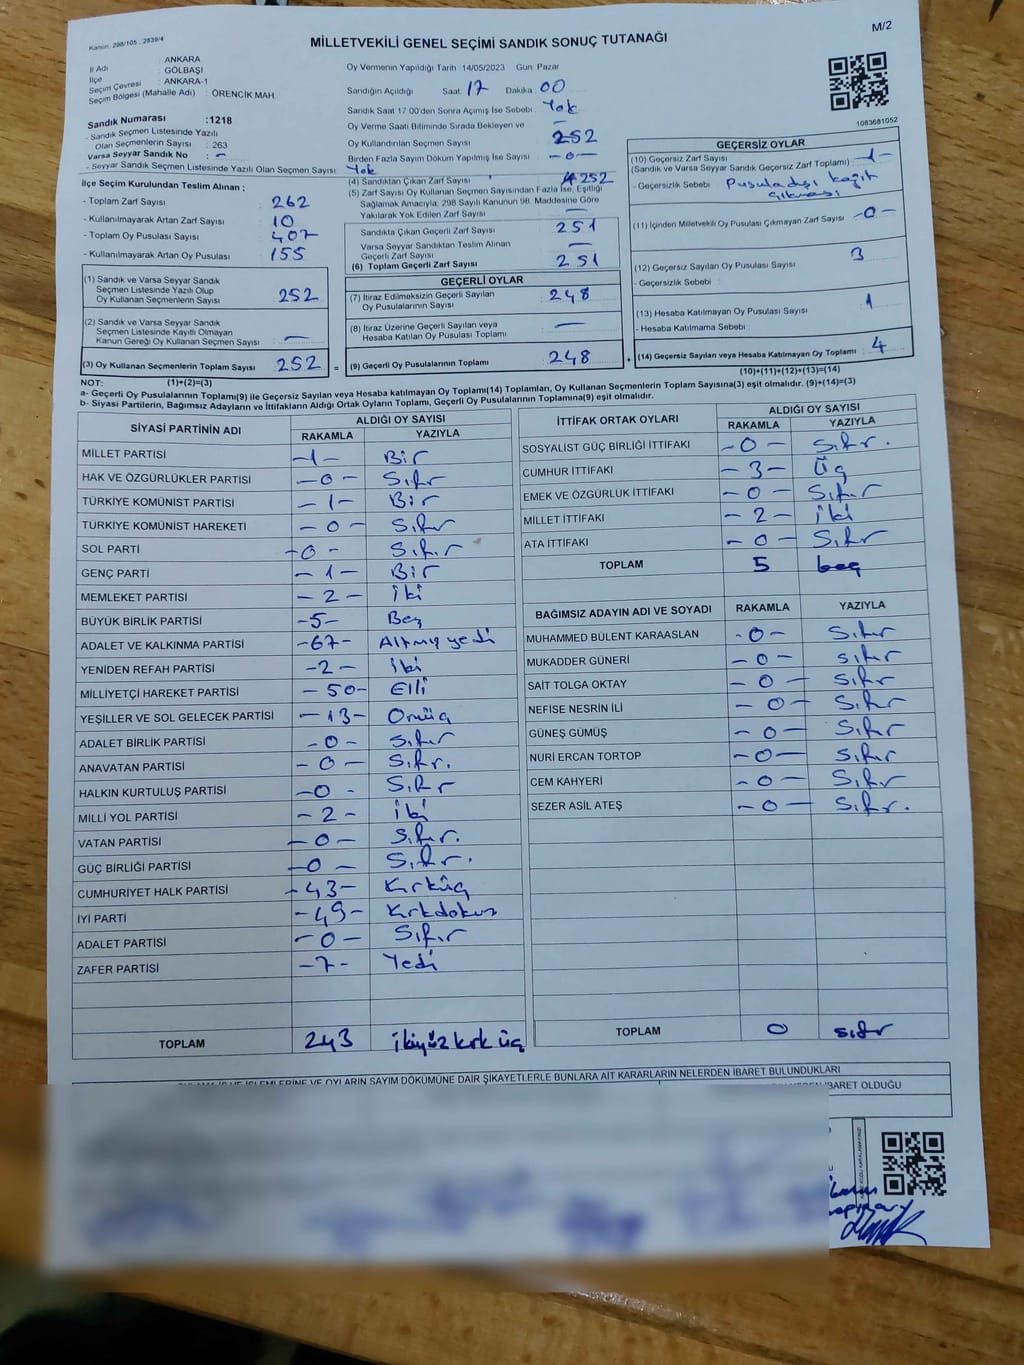 Kanun, 298/105 , 2839/4
M/2
MİLLETVEKİLİ GENEL SEÇİMİ SANDIK SONUÇ TUTANAĞI
İl Adı : ANKARA
İlçe : GÖLBAŞI
Seçim Çevresi : ANKARA-1
Seçim Bölgesi (Mahalle Adı) : ÖRENCİK MAH.
Sandık Numarası :1218
- Sandık Seçmen Listesinde Yazılı
Olan Seçmenlerin Sayısı : 263
Varsa Seyyar Sandık No : -
- Seyyar Sandık Seçmen Listesinde Yazılı Olan Seçmen Sayısı : Yok
Oy Vermenin Yapıldığı Tarih :14/05/2023 Gün: Pazar
Sandığın Açıldığı Saat: 17 Dakika: 00
Sandık Saat 17:00'den Sonra Açımış İse Sebebi : Yok
Oy Verme Saati Bitiminde Sırada Bekleyen ve
Oy Kullandırılan Seçmen Sayısı : 252
Birden Fazla Sayım Döküm Yapılmış İse Sayısı : -0-
(4) Sandıktan Çıkan Zarf Sayısı : 252
(5) Zarf Sayısı Oy Kullanan Seçmen Sayısından Fazla İse, Eşitliği
Sağlamak Amacıyla, 298 Sayılı Kanunun 98. Maddesine Göre
Yakılarak Yok Edilen Zarf Sayısı : —
1083681052
İlçe Seçim Kurulundan Teslim Alınan ;
- Toplam Zarf Sayısı : 262
- Kullanılmayarak Artan Zarf Sayısı : 10
- Toplam Oy Pusulası Sayısı : 407
- Kullanılmayarak Artan Oy Pusulası : 155
(1) Sandık ve Varsa Seyyar Sandık
Seçmen Listesinde Yazılı Olup
Oy Kullanan Seçmenlerin Sayısı : 252
(2) Sandık ve Varsa Seyyar Sandık
Seçmen Listesinde Kayıtlı Olmayan
Kanun Gereği Oy Kullanan Seçmen Sayısı : —
(3) Oy Kullanan Seçmenlerin Toplam Sayısı : 252
Sandıkta Çıkan Geçerli Zarf Sayısı : 251
Varsa Seyyar Sandıktan Teslim Alınan
Geçerli Zarf Sayısı : —
(6) Toplam Geçerli Zarf Sayısı : 251
GEÇERLİ OYLAR
(7) İtiraz Edilmeksizin Geçerli Sayılan
Oy Pusulalarının Sayısı : 248
(8) İtiraz Üzerine Geçerli Sayılan veya
Hesaba Katılan Oy Pusulası Toplamı : —
= (9) Geçerli Oy Pusulalarının Toplamı : 248
GEÇERSİZ OYLAR
(10) Geçersiz Zarf Sayısı : -1-
(Sandık ve Varsa Seyyar Sandık Geçersiz Zarf Toplamı)
- Geçersizlik Sebebi : Pusula dışı kağıt çıkması
(11) İçinden Milletvekili Oy Pusulası Çıkmayan Zarf Sayısı : -0-
(12) Geçersiz Sayılan Oy Pusulası Sayısı : 3
- Geçersizlik Sebebi :
(13) Hesaba Katılmayan Oy Pusulası Sayısı : 1
- Hesaba Katılmama Sebebi :
+ (14) Geçersiz Sayılan veya Hesaba Katılmayan Oy Toplamı : 4
NOT: (1)+(2)=(3)
(10)+(11)+(12)+(13)=(14)
a- Geçerli Oy Pusulalarının Toplamı(9) ile Geçersiz Sayılan veya Hesaba katılmayan Oy Toplamı(14) Toplamları, Oy Kullanan Seçmenlerin Toplam Sayısına(3) eşit olmalıdır. (9)+(14)=(3)
b- Siyasi Partilerin, Bağımsız Adayların ve İttifakların Aldığı Ortak Oyların Toplamı, Geçerli Oy Pusulalarının Toplamına(9) eşit olmalıdır.
SİYASİ PARTİNİN ADI ALDIĞI OY SAYISI
RAKAMLA YAZIYLA
MİLLET PARTİSİ -1- Bir
HAK VE ÖZGÜRLÜKLER PARTİSİ -0- Sıfır
TÜRKİYE KOMÜNİST PARTİSİ -1- Bir
TÜRKİYE KOMÜNİST HAREKETİ -0- Sıfır
SOL PARTİ -0- Sıfır
GENÇ PARTİ -1- Bir
MEMLEKET PARTİSİ -2- İki
BÜYÜK BİRLİK PARTİSİ -5- Beş
ADALET VE KALKINMA PARTİSİ -67- Altmış yedi
YENİDEN REFAH PARTİSİ -2- İki
MİLLİYETÇİ HAREKET PARTİSİ -50- Elli
YEŞİLLER VE SOL GELECEK PARTİSİ -13- Onüç
ADALET BİRLİK PARTİSİ -0- Sıfır
ANAVATAN PARTİSİ -0- Sıfır.
HALKIN KURTULUŞ PARTİSİ -0- Sıfır
MİLLİ YOL PARTİSİ -2- İki
VATAN PARTİSİ -0- Sıfır.
GÜÇ BİRLİĞİ PARTİSİ -0- Sıfır.
CUMHURİYET HALK PARTİSİ -43- Kırküç
İYİ PARTİ -49- Kırkdokuz
ADALET PARTİSİ -0- Sıfır
ZAFER PARTİSİ -7- Yedi
TOPLAM 243 ikiyüz kırk üç
İTTİFAK ORTAK OYLARI ALDIĞI OY SAYISI
RAKAMLA YAZIYLA
SOSYALİST GÜÇ BİRLİĞİ İTTİFAKI -0- Sıfır.
CUMHUR İTTİFAKI -3- Üç
EMEK VE ÖZGÜRLÜK İTTİFAKI -0- Sıfır
MİLLET İTTİFAKI -2- İki
ATA İTTİFAKI -0- Sıfır
TOPLAM 5 beş
BAĞIMSIZ ADAYIN ADI VE SOYADI RAKAMLA YAZIYLA
MUHAMMED BÜLENT KARAASLAN -0- Sıfır
MUKADDER GÜNERİ -0- Sıfır
SAİT TOLGA OKTAY -0- Sıfır
NEFİSE NESRİN İLİ -0- Sıfır
GÜNEŞ GÜMÜŞ -0- Sıfır
NURİ ERCAN TORTOP -0- Sıfır
CEM KAHYERİ -0- Sıfır
SEZER ASİL ATEŞ -0- Sıfır.
TOPLAM 0 sıfır
İŞLEMLERİNE VE OYLARIN SAYIM DÖKÜMÜNE DAİR ŞİKAYETLERLE BUNLARA AİT KARARLARIN NELERDEN İBARET BULUNDUKLARI
İBARET OLDUĞU